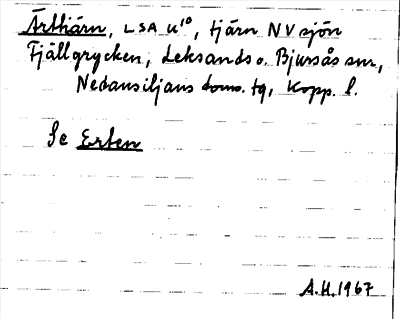 Ärttiärn, LSA u¹⁰, tjärn NV sjön
Fjällgrycken, Leksands o. Bjursås snr,
Nedansiljans doms. tg, Kopp. l.
Se Erten
A.H. 1967